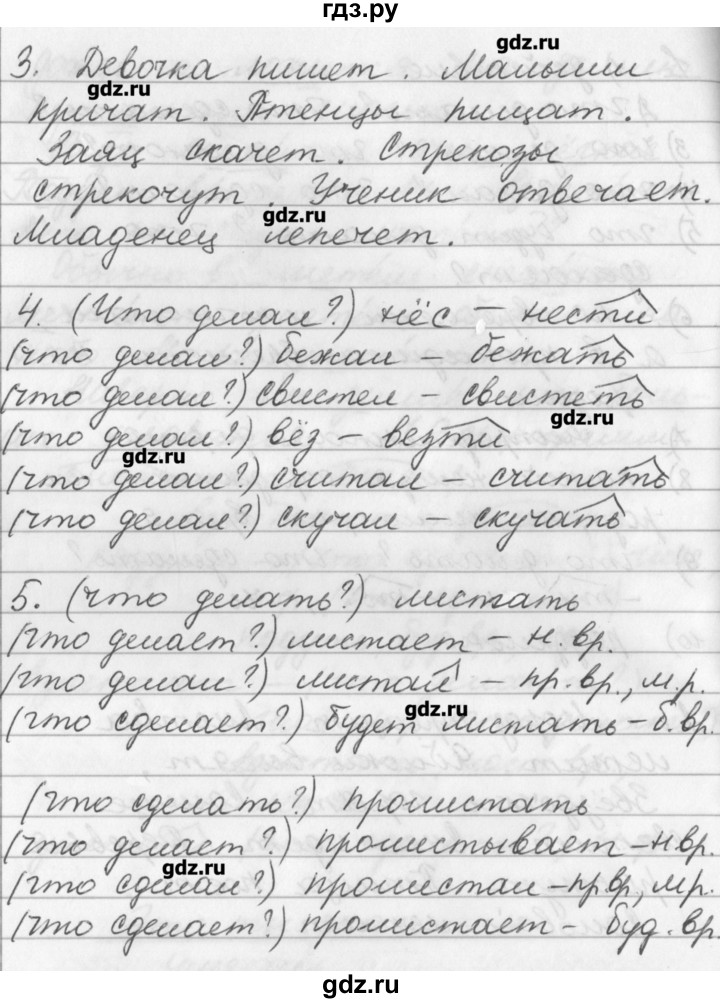 гдз.ру
gdz.ru
3. Девочка пишет. Малыши
gdz.ru
кричат. Птенцы пищат.
Заяц скачет. Стрекозы
стрекочут. Ученик отвечает.
gdz.ru
Младенец лепечет.
4. (Что делал?) нёс – нести
(что делал?) бежал – бежать
(что делал?) свистел – свистеть
gdz.ru
(что делал?) вёз – везти
gdz.ru
(что делал?) считал – считать
(что делал?) скучал – скучать
5. (что делать?) листать
(что делает?) листает – н.вр.
(что делал?) листал – пр.вр., м.р.
gdz.ru
(что сделает?) будет листать – б.вр.
(что сделать?) пролистать
(что делает?) пролистывает – н.вр.
gdz.ru
(что сделал?) пролистал – пр.вр, м.р.
(что сделает?) пролистает – буд.вр.
gdz.ru